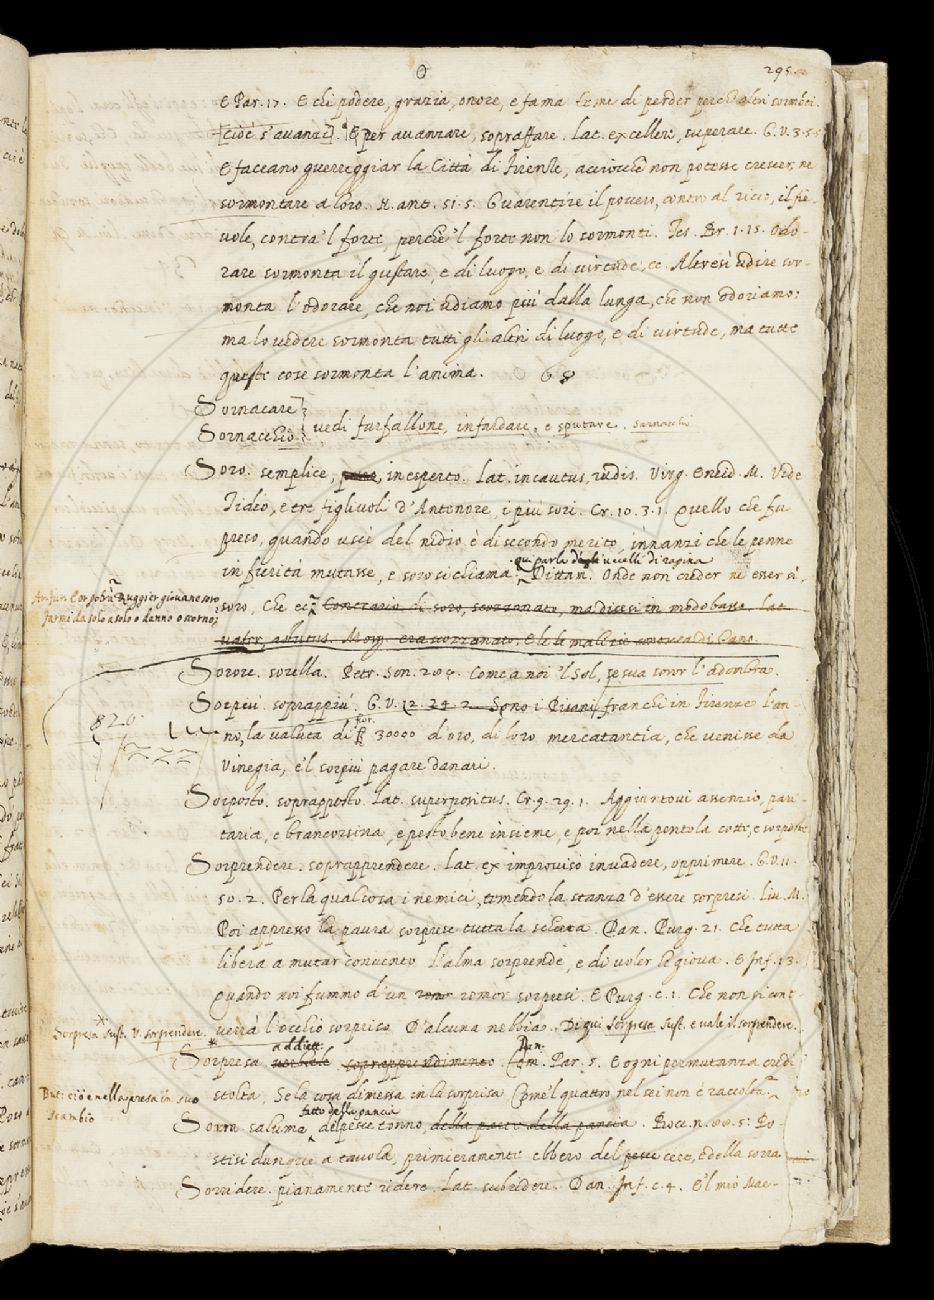 O
295.
E Par. 17. E chi podere, grazia, onore, e fama teme di perder perch'altri sormonti.
[cioè s'avanzi]. E per avanzare, sopraffare. Lat. excellere, superare. G.V. 3.
E faceano guerreggiar la Città di Firenze, acciocchè non potesse crescer, ne
sormontare a loro. N. ant. 51. 5. Guarentire il povero, contro al ricco, il fie-
vole, contra 'l forte, perche 'l forte non lo sormonti. Tes. Br. 1. 15. Odo-
rare sormonta il gustare, e di luogo, e di virtude, ec. Altresì udire sor-
monta l'odorare, che noi udiamo più dalla lunga, che non odoriamo:
ma lo vedere sormonta tutti gli altri di luogo, e di virtude, ma tutte
queste cose sormonta l'anima.
Sornacare
Sornacchio
vedi farfallone, infardare, e sputare. sarnacchi
Soro. semplice, inesperto. Lat. incautus, rudis. Virg. Eneid. M. Vide
Tideo, e tre figlivoli d'Antenore, i più sori. Cr. 10. 3. 1. Quello che fu
preso, quando uscì del nidio è di secondo merito, innanzi che le penne
qui parla degli uccelli di rapina
in fierità mutasse, e soro si chiama. Dittam. Onde non creder nè esser sì,
soro, che ec. Contrario di soro, scozzonato, ma dicesi in modo basso. Lat
vafer, astutus. Morg. era scozzonato. E le le malizie sapeva di Cano.
An. fur. Ruggier giovane soro
farmi da solo a solo o danno o scorno;
Sorore. sorella. Petr. Son. Come a noi 'l Sol, se sua soror l'adombra.
Sorpiù. soprappiù. G.V. 12. 24. 2. Sono i Pisani franchi in Firenze l'an-
no, la valuta di fior. 30000 d'oro, di loro mercatantia, che venisse da
Vinegia, e 'l sorpiù pagare danari.
820
722
Sorposto. soprapposto. Lat. superpositus. Cr. 9. 29. 1. Aggiuntovi assenzio, pari-
taria, e brancorsina, e pesto bene insieme, e poi nella pentola cotto, e sorposto.
Sorprendere. soprapprendere. Lat. ex improviso invadere, opprimere. G.V. 11.
50. 2. Per la qual cosa i nemici, temendo la stanza d'essere sorpresi. Liv. M.
Poi appresso la paura sorprese tutta la schiera. Dan. Purg. 21. Che tutta
libera a mutar convento l'alma sorprende, e di voler le giova. E Inf. 13.
Quando noi fummo d'un romor sorpresi. E Purg. c. 1. Che non si conv-
verrà l'occhio sorpriso D'alcuna nebbia. Di qui Sorpresa sust. e vale il sorprendere.
Sorpresa sust. V. sorprendere.
addiett:
Sorpresa verbale soprapprendimento Dan. Par. 5. E ogni permutanza credi
stolta, Se la cosa dimessa in la sorpresa Come 'l quattro nel sei non è raccolta.
But: ciò è nella presa in suo
scambio
fatto della pancia
Sorra salume del pesce tonno, della parte della pancia. Bocc. n. 5: Po-
stisi dunque a tavola, primieramente ebbero del cece, e della sorra
Sorridere. pianamente ridere. Lat. subridere. Dan. Inf. c. 4. E 'l mio Mae-